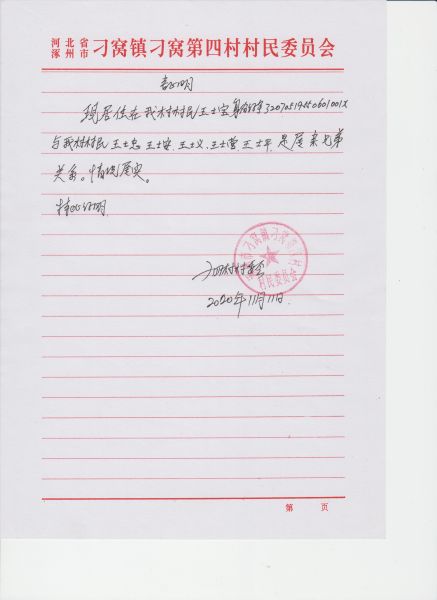 河北省涿州市刁窝镇刁窝第四村村民委员会
证明
现居住在我村村民王士宝身份证32070519550601001X
与我村村民王士忠、王士安、王士义、王士营、王士平,是
亲
弟
关系。情况属实。
特此证明
刁四村村委会
2020年11月11日
村民委员会
第 页